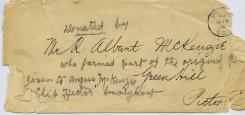 Donated by
Mr R. Albert McKenzie
who formed part of the original
given to Angus McKenzie Green Hill
Ship Hector emigrant
Pictou